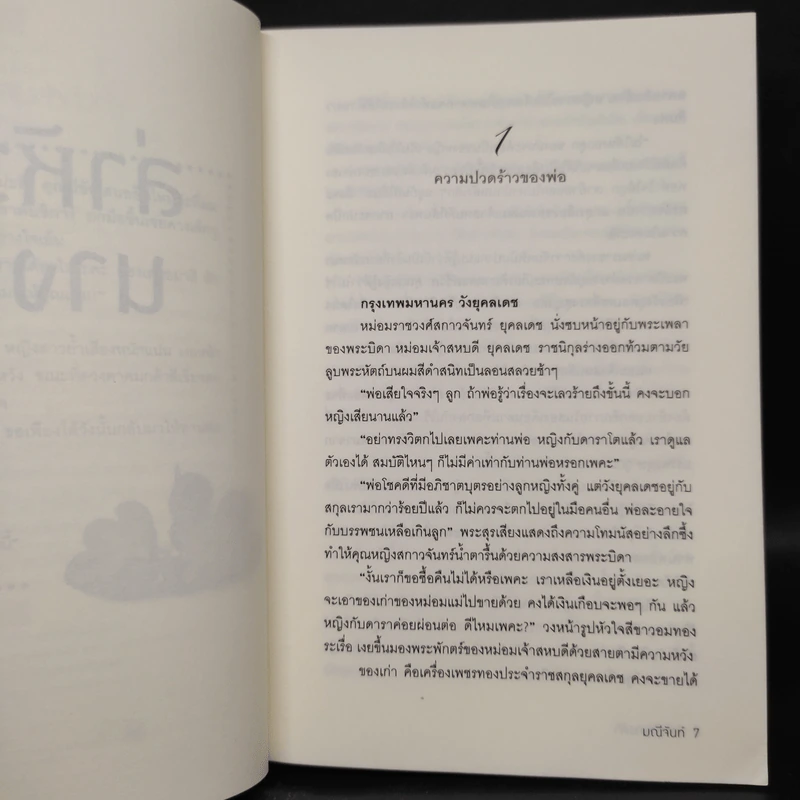 ล่าหั
นาง
1
ความปวดร้าวของพ่อ
กรุงเทพมหานคร วังยุคลเดช
หม่อมราชวงศ์สกาวจันทร์ ยุคลเดช นั่งซบหน้าอยู่กับพระเพลา
ของพระบิดา หม่อมเจ้าสหบดี ยุคลเดช ราชนิกุลร่างออกท้วมตามวัย
ลูบพระหัตถ์บนผมสีดำสนิทเป็นลอนสลวยช้าๆ
“พ่อเสียใจจริงๆ ลูก ถ้าพ่อรู้ว่าเรื่องจะเลวร้ายถึงขั้นนี้ คงจะบอก
หญิงเสียนานแล้ว”
“อย่าทรงวิตกไปเลยเพคะท่านพ่อ หญิงกับดาราโตแล้ว เราดูแล
ตัวเองได้ สมบัติไหนๆ ก็ไม่มีค่าเท่ากับท่านพ่อหรอกเพคะ”
“พ่อโชคดีที่มีอภิชาตบุตรอย่างลูกหญิงทั้งคู่ แต่วังยุคลเดชอยู่กับ
สกุลเรามากว่าร้อยปีแล้ว ก็ไม่ควรจะตกไปอยู่ในมือคนอื่น พ่อละอายใจ
กับบรรพชนเหลือเกินลูก” พระสุรเสียงแสดงถึงความโทมนัสอย่างลึกซึ้ง
ทำให้คุณหญิงสกาวจันทร์น้ำตารื้นด้วยความสงสารพระบิดา
“งั้นเราก็ขอซื้อคืนไม่ได้หรือเพคะ เราเหลือเงินอยู่ตั้งเยอะ หญิง
จะเอาของเก่าของหม่อมแม่ไปขายด้วย คงได้เงินเกือบจะพอๆ กัน แล้ว
หญิงกับดาราค่อยผ่อนต่อ ดีไหมเพคะ?” วงหน้ารูปหัวใจสีขาวอมทอง
ระเรื่อ เงยขึ้นมองพระพักตร์ของหม่อมเจ้าสหบดีด้วยสายตามีความหวัง
ของเก่า คือเครื่องเพชรทองประจำราชสกุลยุคลเดช คงจะขายได้
มณีจันท์ 7